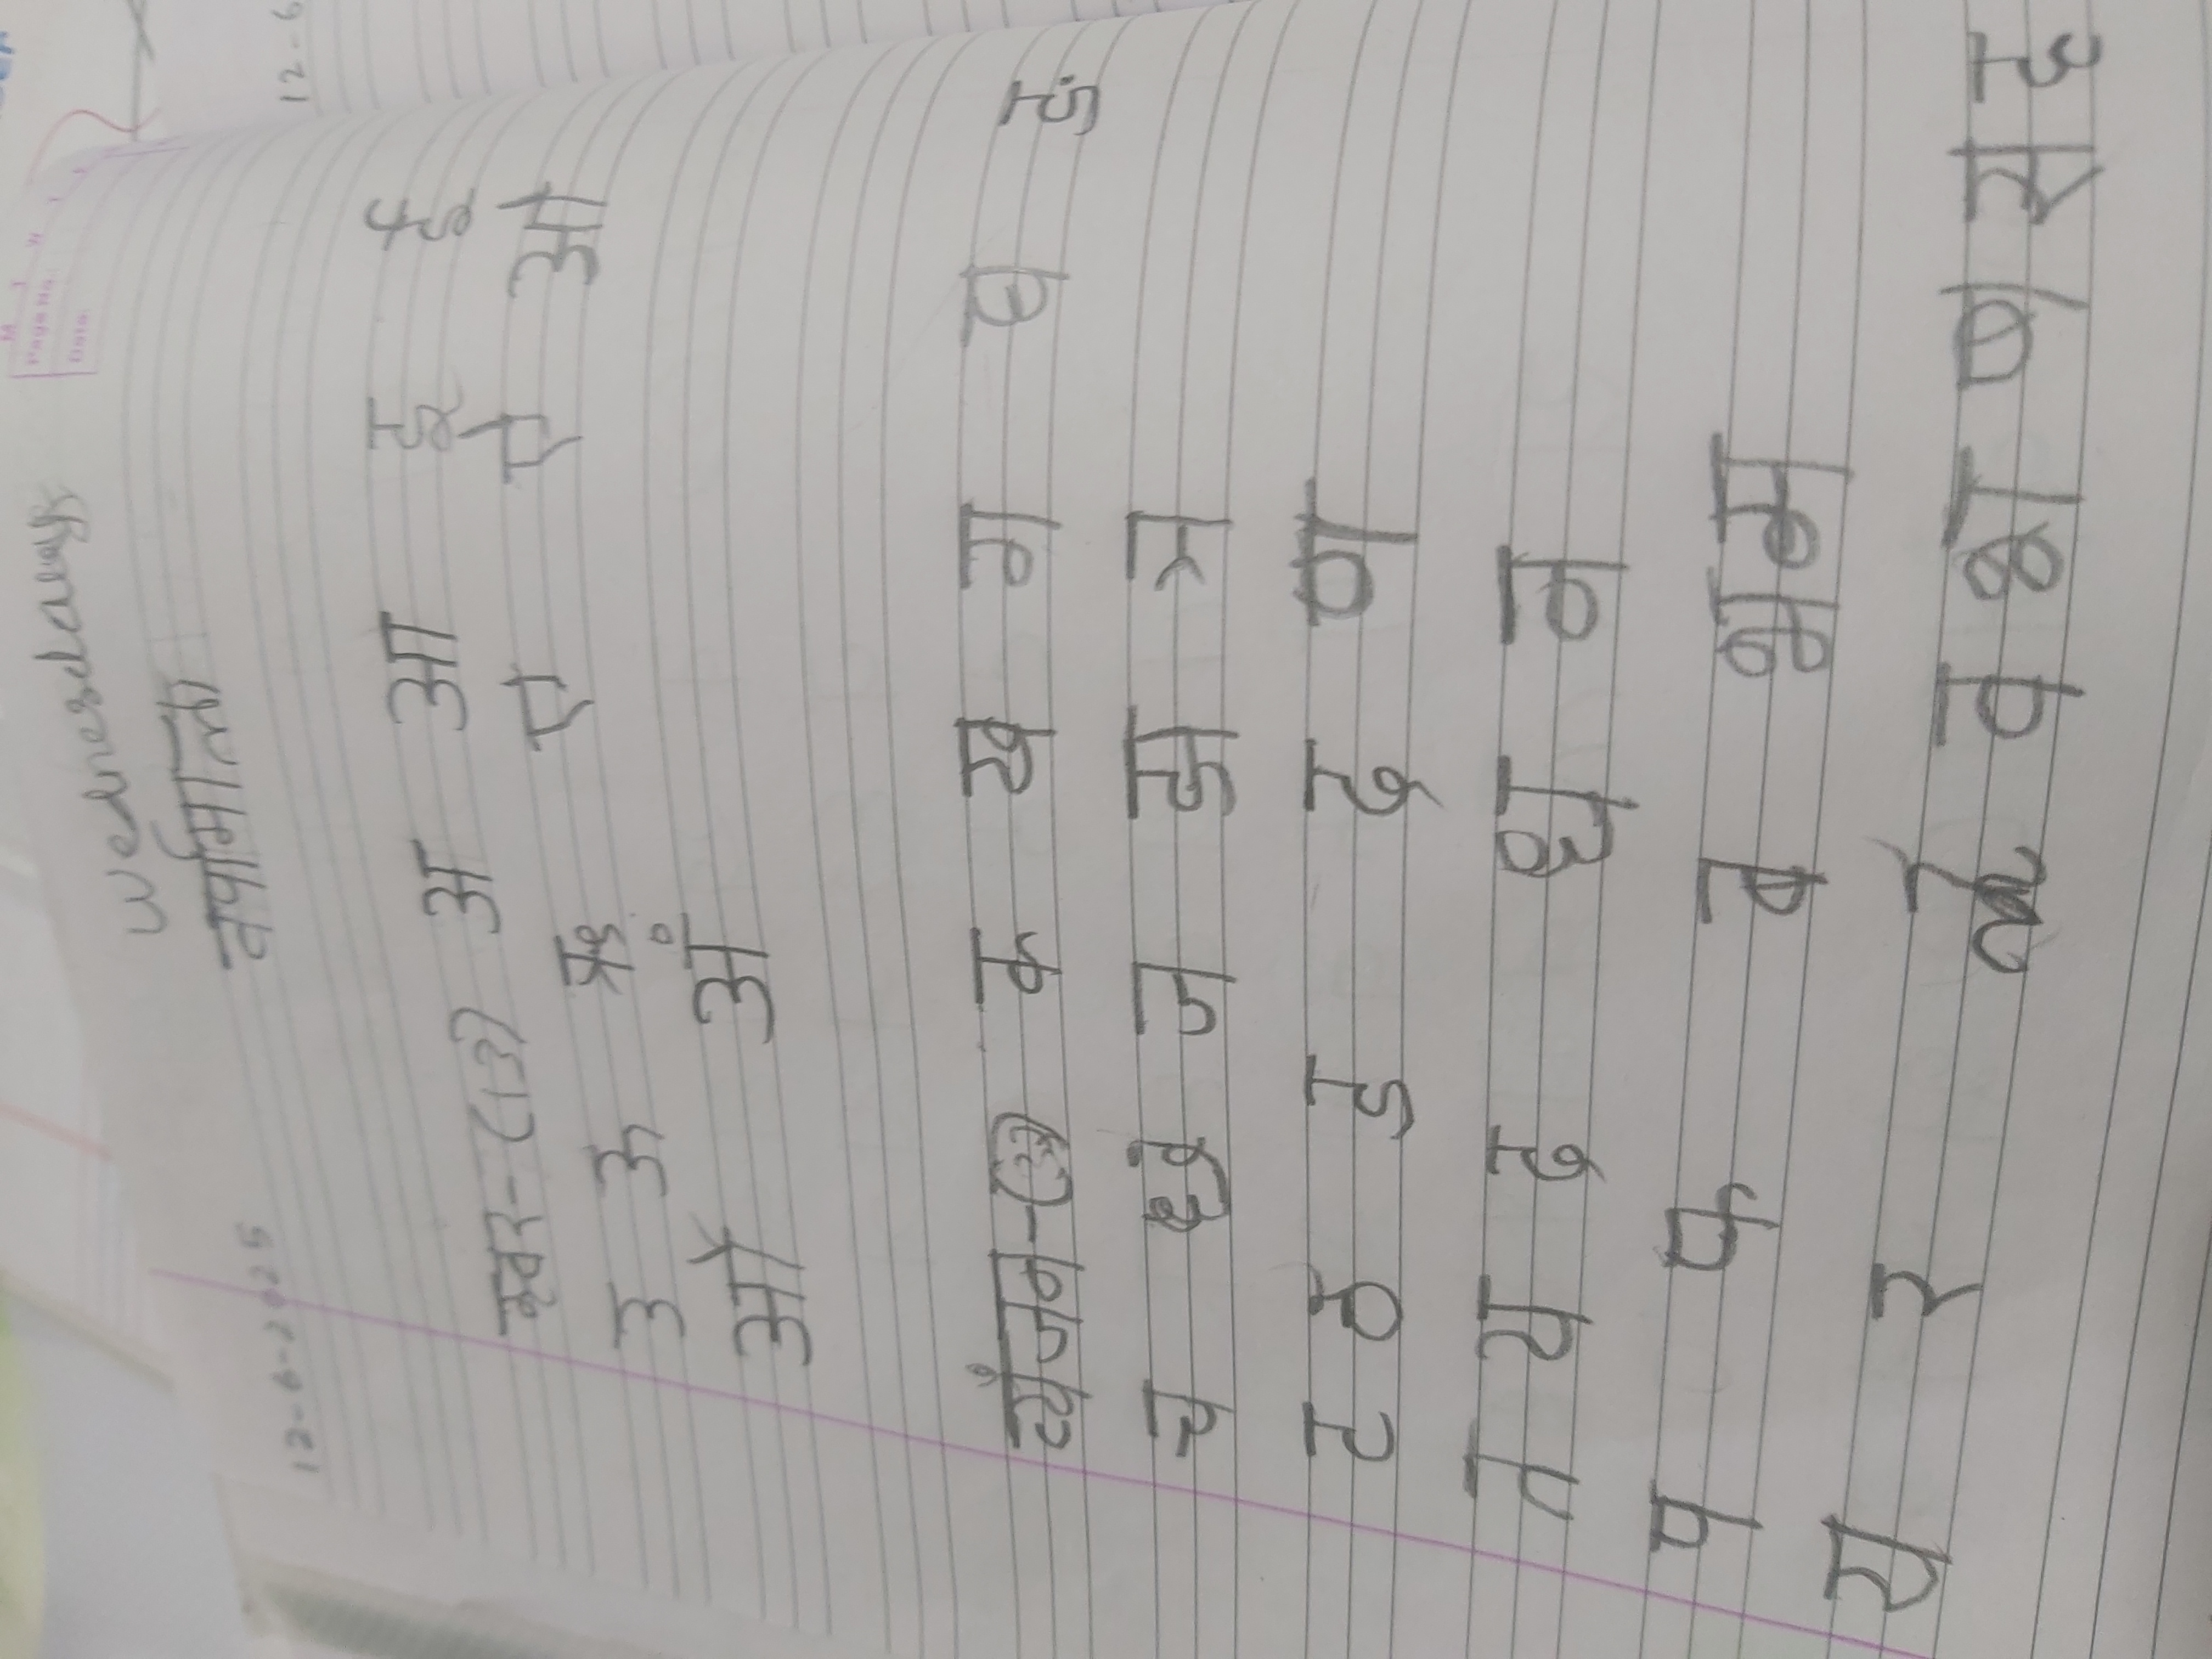 12-6-2025
Wednesday
वर्णमाला
स्वर-(13) अ आ इ ई
उ ऊ ऋ ए ऐ ओ
औ अं
व्यंजन- क ख ग घ ङ
च छ ज झ ञ
ट ठ ड ढ ण
त थ द ध न
प फ ब भ म
य र ल व श ष स ह